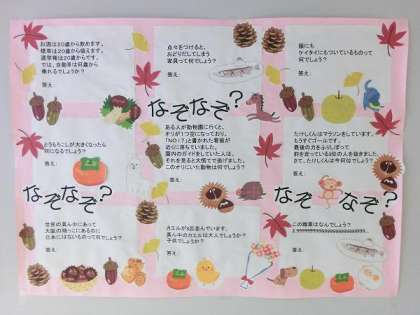 お酒は20歳から飲めます。
煙草は20歳から吸えます。
選挙権は20歳からです。
では、自動車は何歳から
乗れるでしょうか?
答え:
点々をつけると、
おどりだしてしまう
家具って何でしょう?
答え:
誰にも
ケイタイにもついているものって
何でしょう?
答え:
なぞなぞ?
とうもろこしが大きくなったら
何になるでしょう?
答え:
ある人が動物園に行くと、
オリが1つ空になっており、
「NO:?」と書かれた看板が
近くに落ちていました。
園内のガイドをしていた人は、
それを見ると大慌てで逃げました。
このオリにいた動物は何でしょう?
答え:
たけしくんはマラソンをしています。
もうすぐゴールです。
最後の力をふりしぼって
答え:
なぞなぞ?
なぞなぞ?
世界の真ん中にあって
大阪の端っこにあるのに
日本にはないものって何でしょう?
答え:
カエルが3匹並んでいます。
真ん中のカエルは大人でしょうか?
子供でしょうか?
答え:
この職業はなんでしょう?
答え: